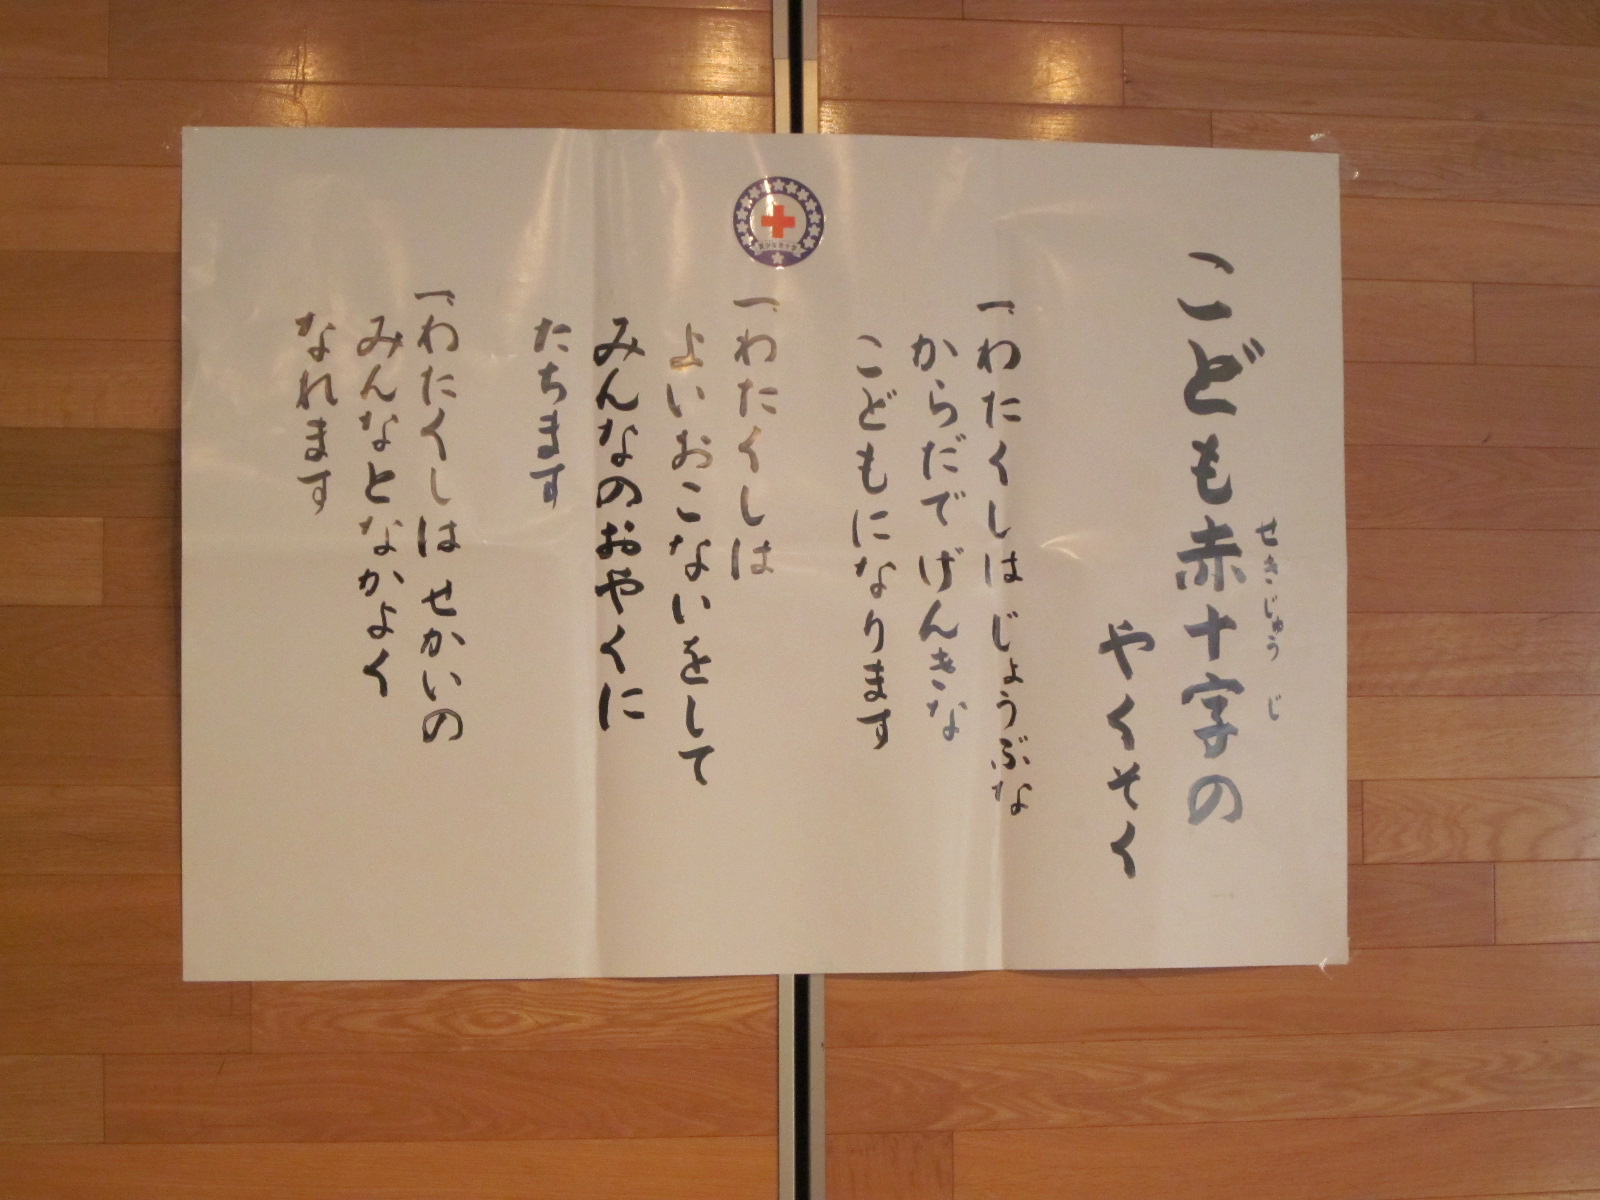 こども赤十字の
せきじゅうじ
やくそく
一、わたくしは じょうぶな
からだで げんきな
こどもになります
一、わたくしは
よいおこないをして
みんなのおやくに
たちます
一、わたくしは せかいの
みんなとなかよく
なれます